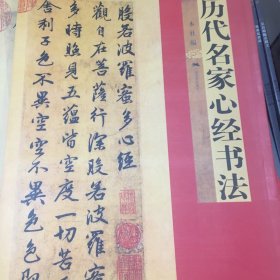 历代名家心经书法
本社编
般若波羅蜜多心經
觀自在菩薩行深般若波羅蜜
多時照見五蘊皆空度一切苦
舍利子色不異空空不異色色即